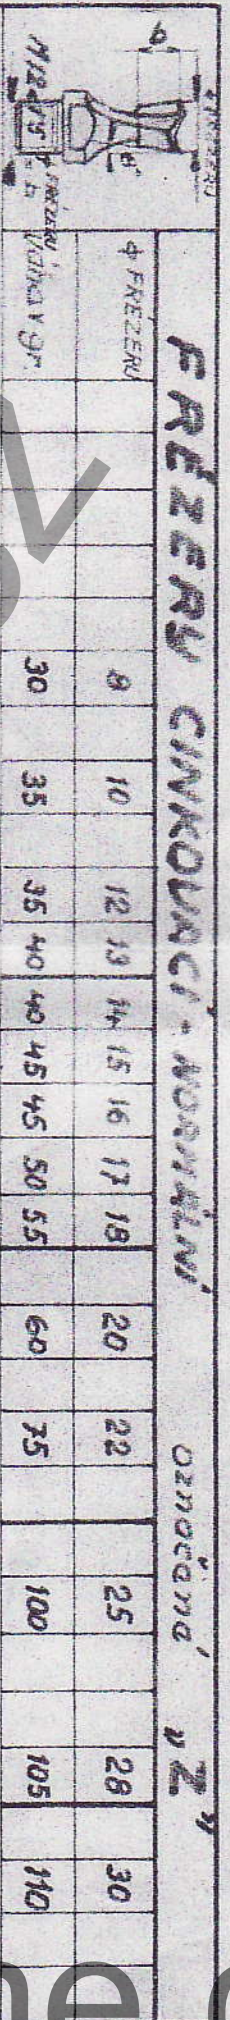 FRÉZERY CINKOVACÍ - NORMÁLNÍ označená "Z"
ϕ FRÉZERU 8 10 12 13 14 15 16 17 18 20 22 25 28 30
Váha v gr. 30 35 35 40 40 45 45 50 55 60 75 100 105 110
ϕ FRÉZERU